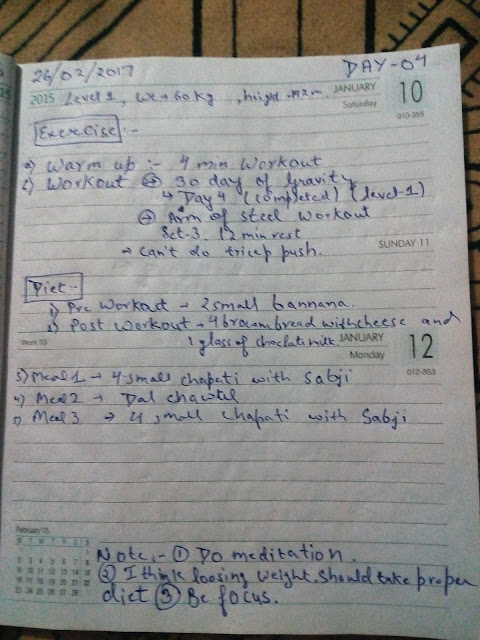 26/02/2017 DAY-04
2015 Level 1, wt → 60 kg, height - JANUARY 10
Saturday
010-355
Exercise :-
Warm up :- 4 min workout
2) Workout → 30 day of Gravity
↳ Day 4 (completed) (level-1)
→ Arm of steel workout
Set-3. 12 min rest
→ Can't do tricep push.
SUNDAY 11
Diet :-
1) Pre Workout → 2 small bannana.
2) Post Workout → 4 brown bread with cheese and
1 glass of choclate milk.
Week 03 JANUARY 12
Monday
012-353
3) Meal 1 → 4 small chapati with Sabji
4) Meal 2 → Dal chawal
5) Meal 3 → 4 small chapati with Sabji
February'15
Note :- ① Do meditation.
② I think loosing weight. should take proper
diet ③ Be focus.